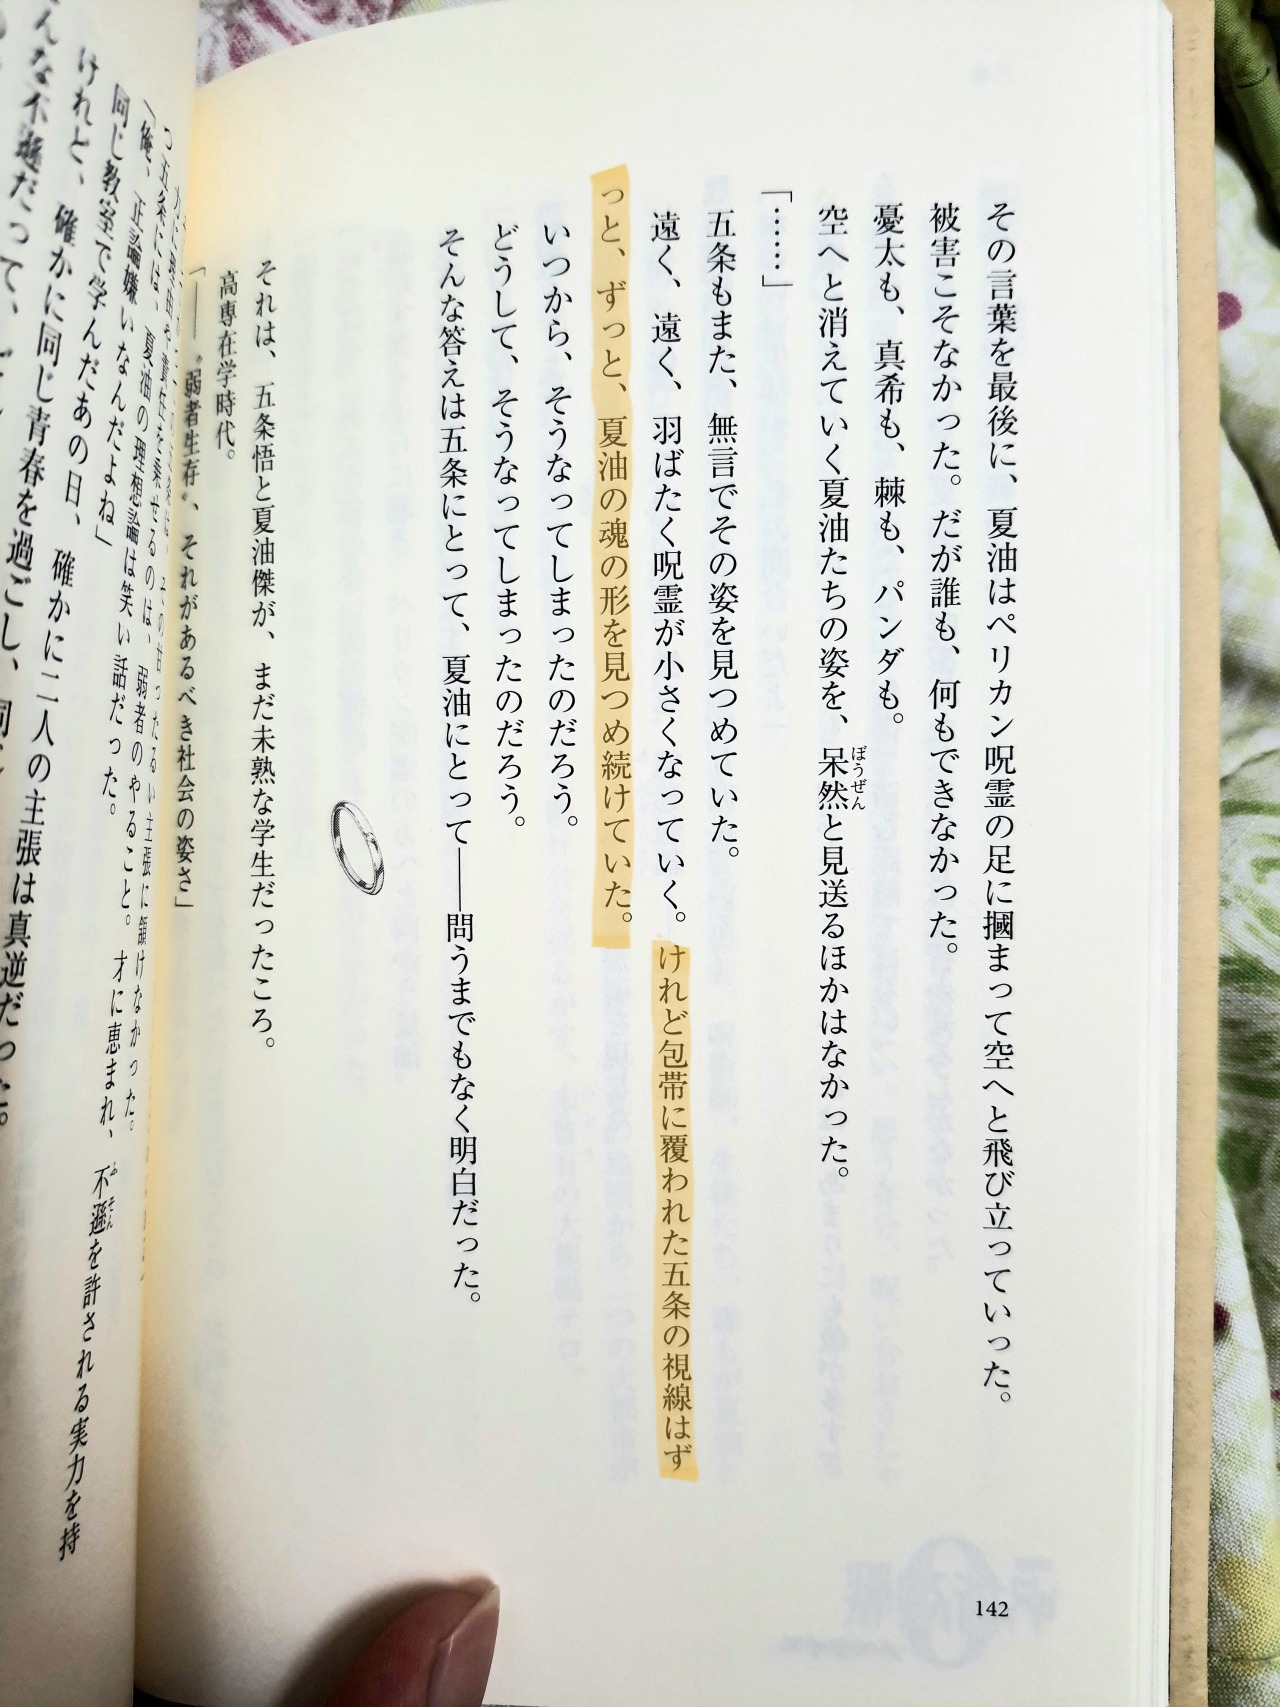 その言葉を最後に、夏油はペリカン呪霊の足に摑まって空へと飛び立っていった。
被害こそなかった。だが誰も、何もできなかった。
憂太も、真希も、棘も、パンダも。
空へと消えていく夏油たちの姿を、呆然と見送るほかはなかった。
ぼうぜん
「……」
五条もまた、無言でその姿を見つめていた。
遠く、遠く、羽ばたく呪霊が小さくなっていく。けれど包帯に覆われた五条の視線はず
っと、ずっと、夏油の魂の形を見つめ続けていた。
いつから、そうなってしまったのだろう。
どうして、そうなってしまったのだろう。
そんな答えは五条にとって、夏油にとって――問うまでもなく明白だった。
それは、五条悟と夏油傑が、まだ未熟な学生だったころ。
高専在学時代。
「――〝弱者生存〟、それがあるべき社会の姿さ」
つ五条には、夏油の理想論は笑い話だった。
「俺、正論嫌いなんだよね」
同じ教室で学んだあの日、
けれど、確かに同じ青春を過ごし、
確かに二人の主張は真逆だった。
弱者のやること。才に恵まれ、不遜を許される実力を持
142